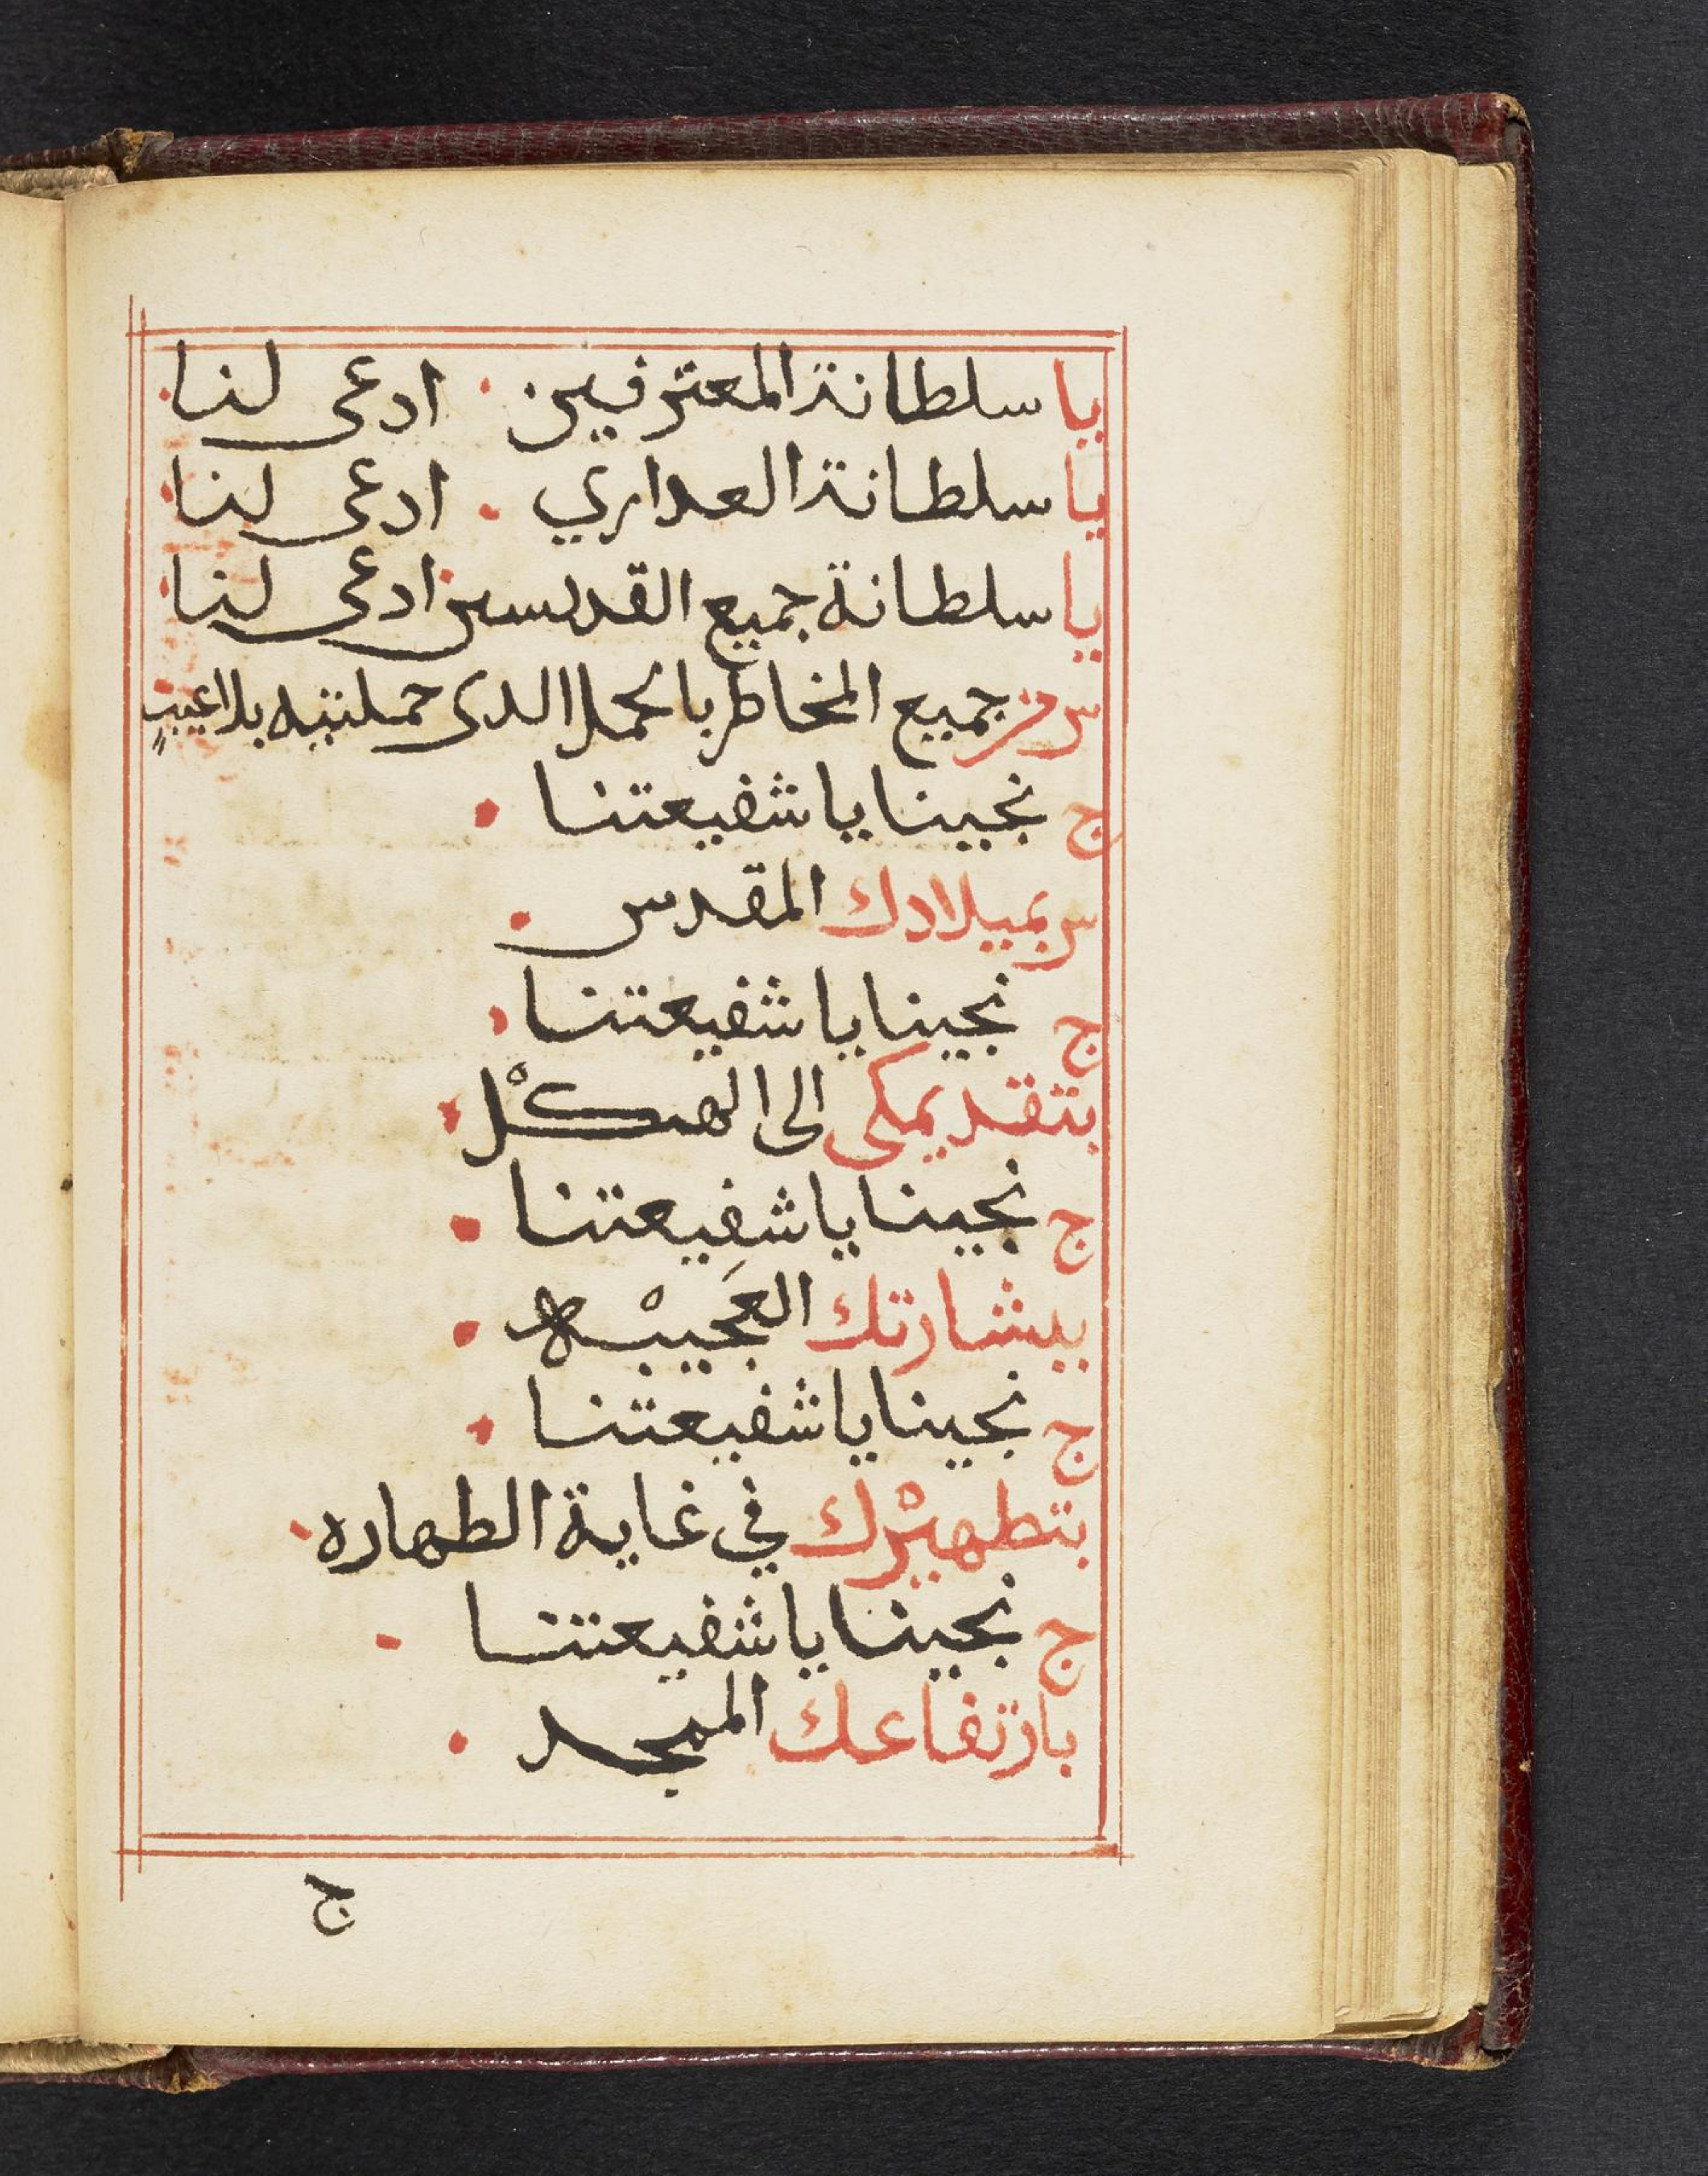 يا سلطانة المعترفين · ادعى لنا ·
يا سلطانة العداري · ادعى لنا ·
يا سلطانة جميع القديسين ادعى لنا ·
س من جميع المخاطر بالحمل الدى حملتيه بلا عيب
ج نجينا يا شفيعتنا ·
س بميلادك المقدس ·
ج نجينا يا شفيعتنا ·
بتقديمكى الى الهيكْل ·
ج نجينا يا شفيعتنا ·
ببشارتك العَجيبْه ·
ج نجينا يا شفيعتنا ·
بتطهيْرك في غاية الطهاره ·
ج نجينا يا شفيعتنا ·
بارتفاعك الممجد ·
ج